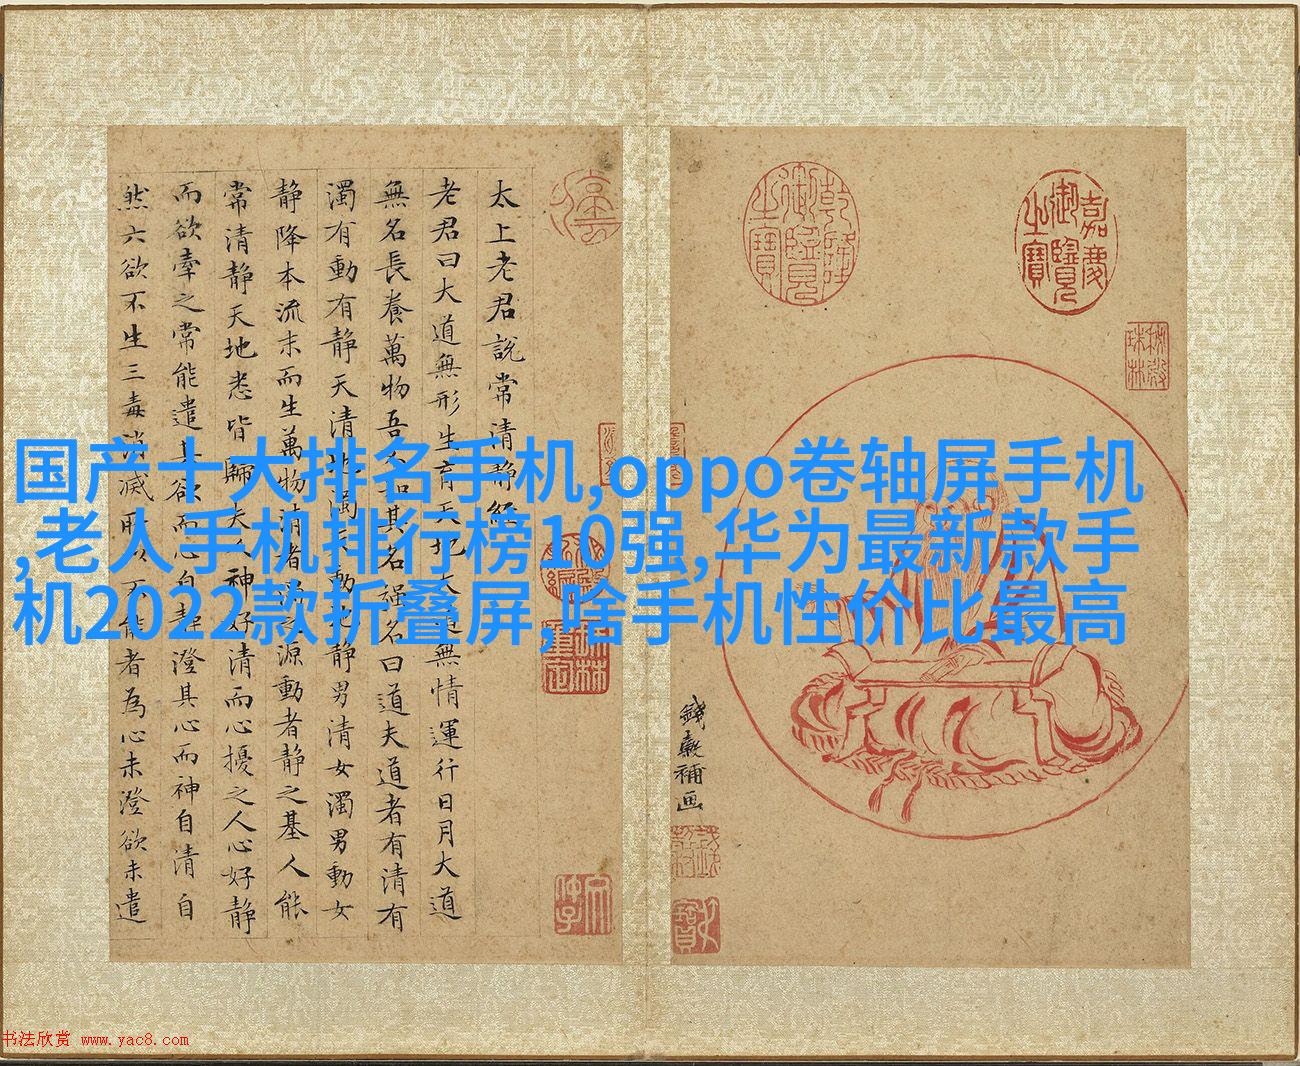 国产十大排名手机,oppo卷轴屏手机
,老人手机排行榜10强,华为最新款手
机2022款折叠屏,啥手机性价比最高
嘉慶御覽之寶
乾隆御覽之寶
錢穀補画
太上老君說常清静經
老君曰大道無形生育天地大道無情運行日月大道
無名長養萬物吾不知其名強名曰道夫道者有清有
濁有動有静天清地濁天動地静男清女濁男動女
静降本流末而生萬物清者濁之源動者静之基人能
常清静天地悉皆歸夫人神好清而心擾之人心好静
而欲牽之常能遣其欲而心自静澄其心而神自清自
然六欲不生三毒消滅所以不能者為心未澄欲未遣
书法欣赏 www.yac8.com